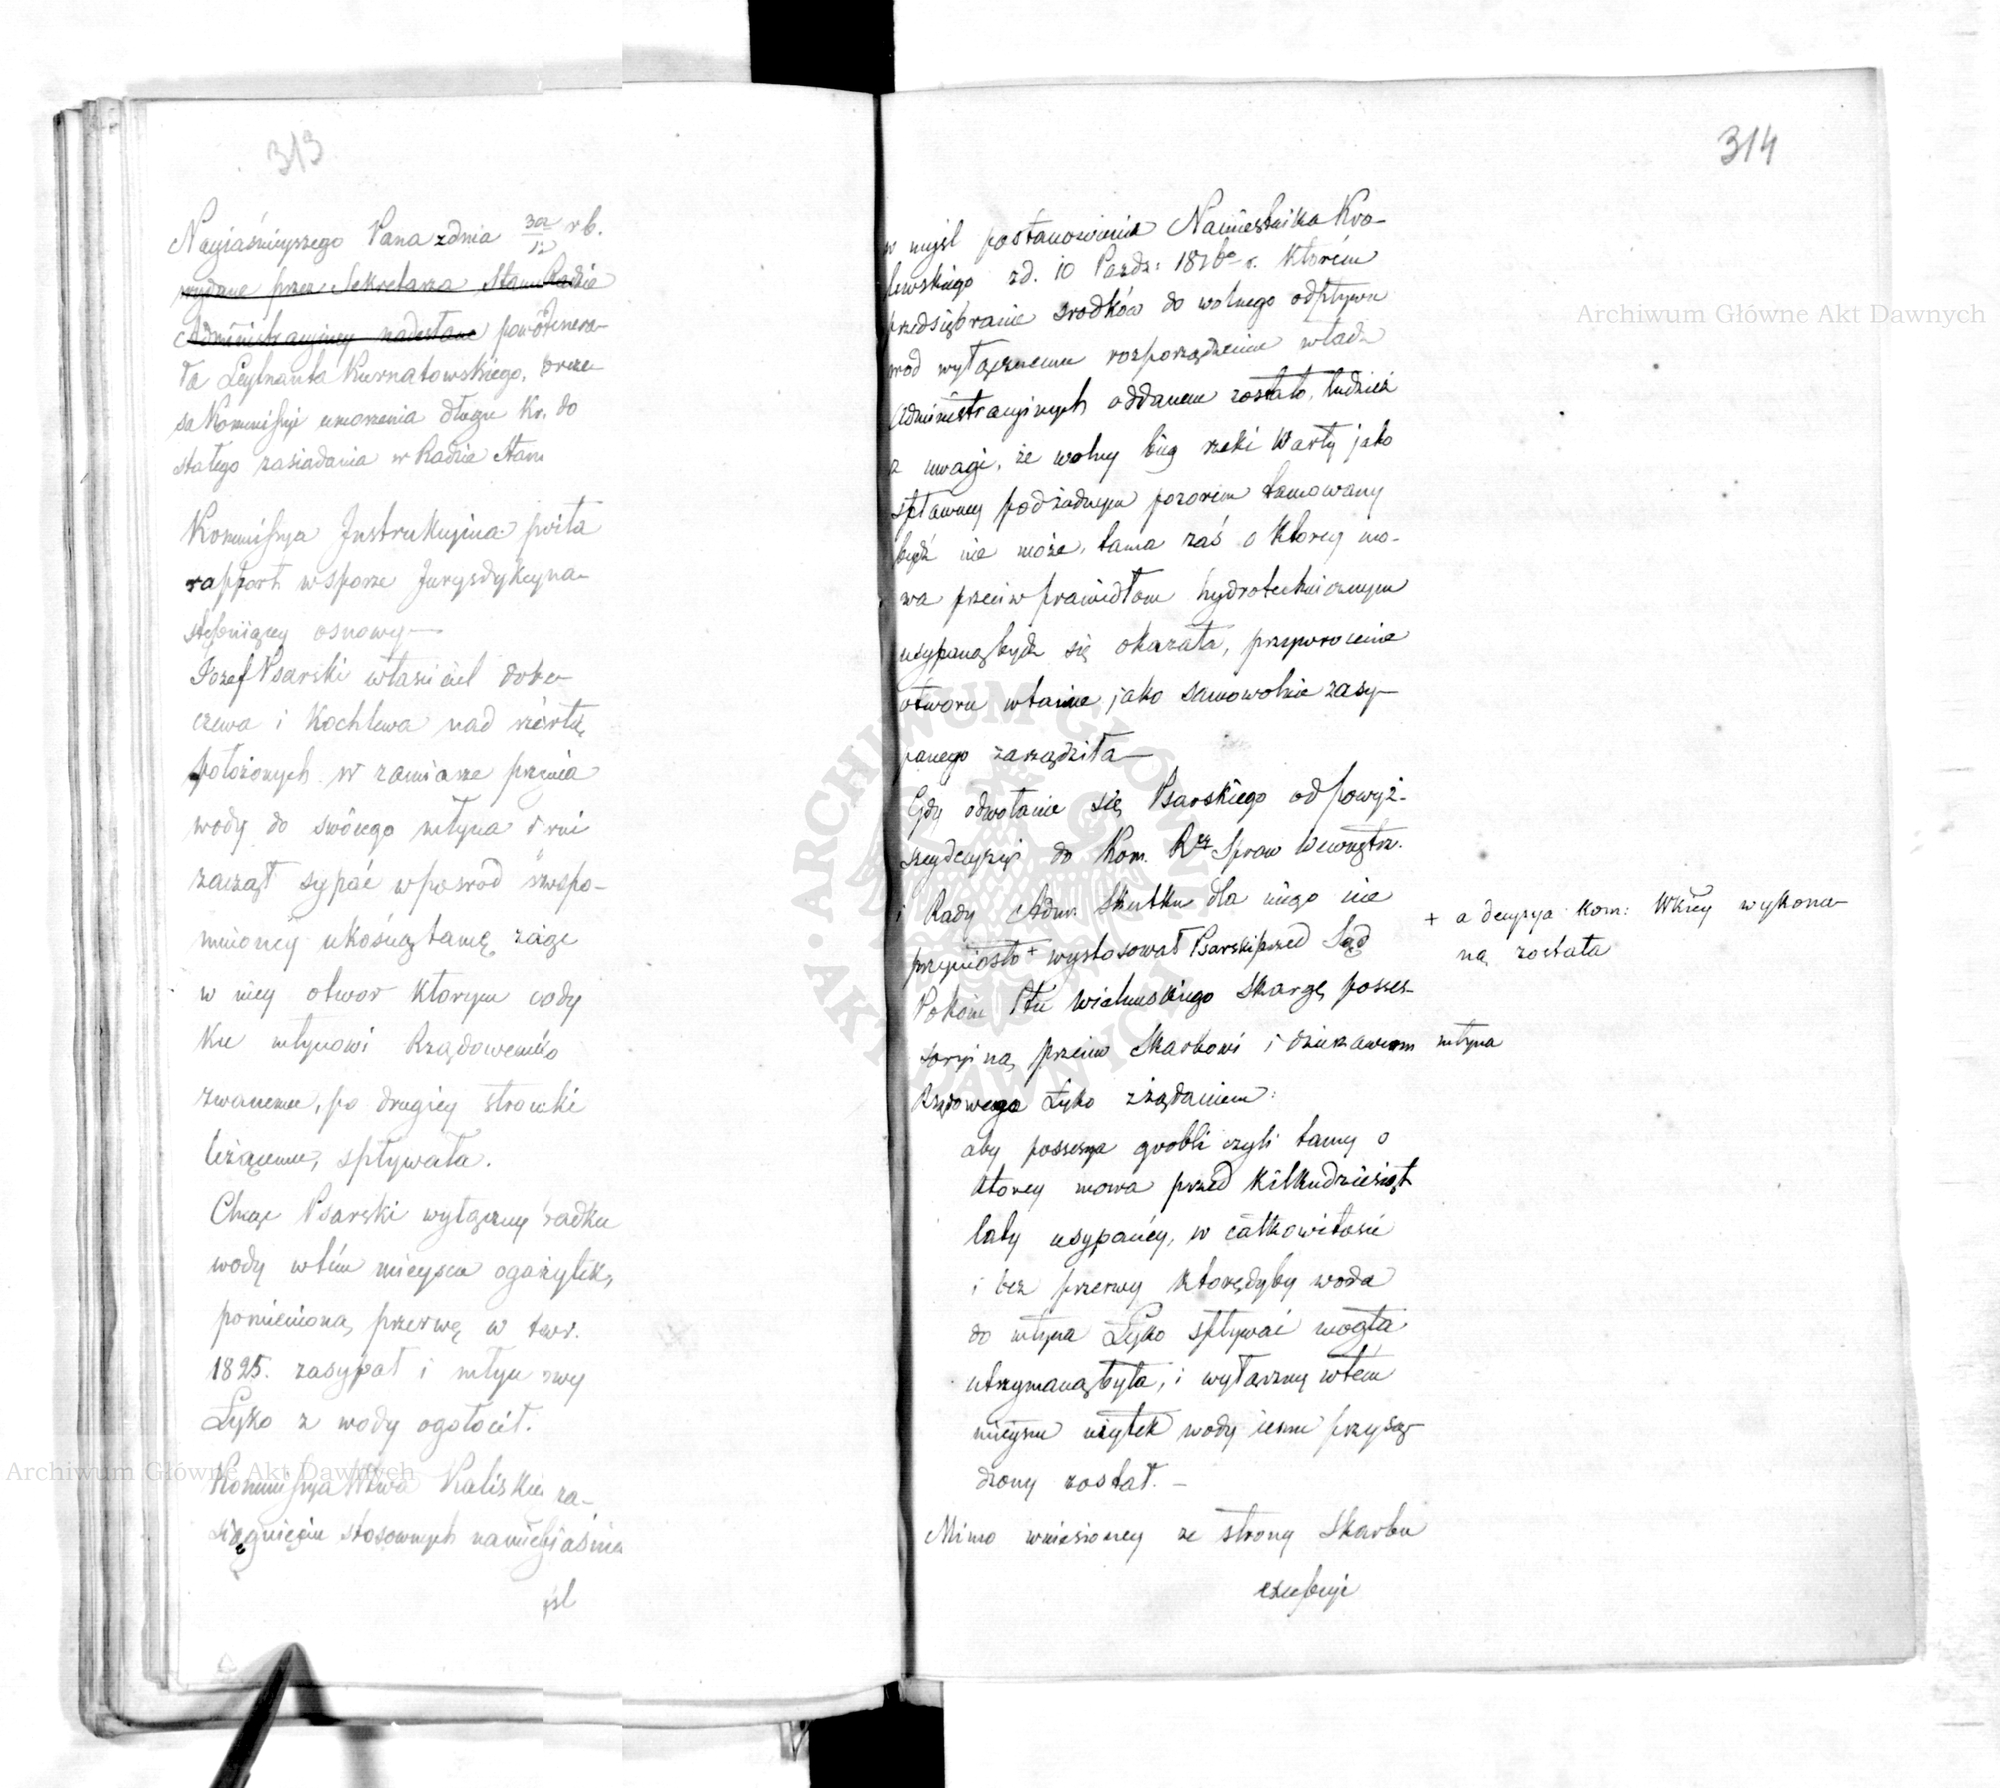 313
Nayiaśnieyszego Pana zdnia 30/12 rb.
wydane przez Sekretarza Stanu Radzie
Administracyiney nadesłane powôł Genera-
ła Leytnanta Kurnatowskiego, Preze-
sa Kommissyi umorzenia długu Kr. do
stałego zasiadania w Radzie Stanu
Kommissya Instrukcyina
rapport wsporze Jurysdykcyina
stępuiący osnowy—
Jozef Psarski właściciel Dobr
czewa i Kochlewa nad Wartą
położonych w zamiarze
wody do swôiego młyna
zaczął sypać wpośrod wspo-
mnioney ukośną tamę,
w niey otwor ktorym wody
ku młynowi Rządowemu Łyko
zwanemu, po drugiey stronie
leżącemu, spływała.
Chcąc Psarski wyłączny
wody wtém mieyscu
pomienioną przerwę w
1825. zasypał i młyn
Łyko z wody ogołocił.
Kommissya Wdwa Kaliskie za-
siągnięciu stosownych

314
w myśl postanowienia Namiestnika Kro-
lewskiego zd. 10 Pazdz: 1816 r. ktorém
przedsiębranie srodków do wolnego odpływu
wod wyłącznemu rozporządzeniu władz
Administracyinych oddanem zostało, tudzież
z uwagi, że wolny bieg rzeki Warty jako
spławney pod żadnym pozorem tamowany
bydź nie może, tama zaś o ktorey mo-
wa przeciw prawidłom hydrotechnicznym
usypaną bydź się okazała, przywrocenie
otworu właśnie jako samowolnie zasy-
panego zarządziła—
Gdy odwołanie się Psarskiego od powyż-
szey decyzyi do Kom. Rz Spraw Wewnętrz.
i Rady Adm. skutku dla niego nie
przyniosło + wystosował Psarski przed Sąd
+ a decyzya kom: Wkiey wykona-
ną została
Pokoiu Ptu Wieluńskiego skargę posses-
soryiną przeciw Skarbowi i dzierzawcom młyna
Rządowego Łyko z żądaniem:
aby possessya grobli czyli tamy o
ktorey mowa przed kilkudziesiąt
laty usypaney, w całkowitości
i bez przerwy ktorędyby woda
do młyna Łyko spływać mogła
utrzymaną była, i wyłączny wtém
mieyscu użytek wody iemu przysą-
dzony został. –
Mimo wniesioney ze strony Skarbu